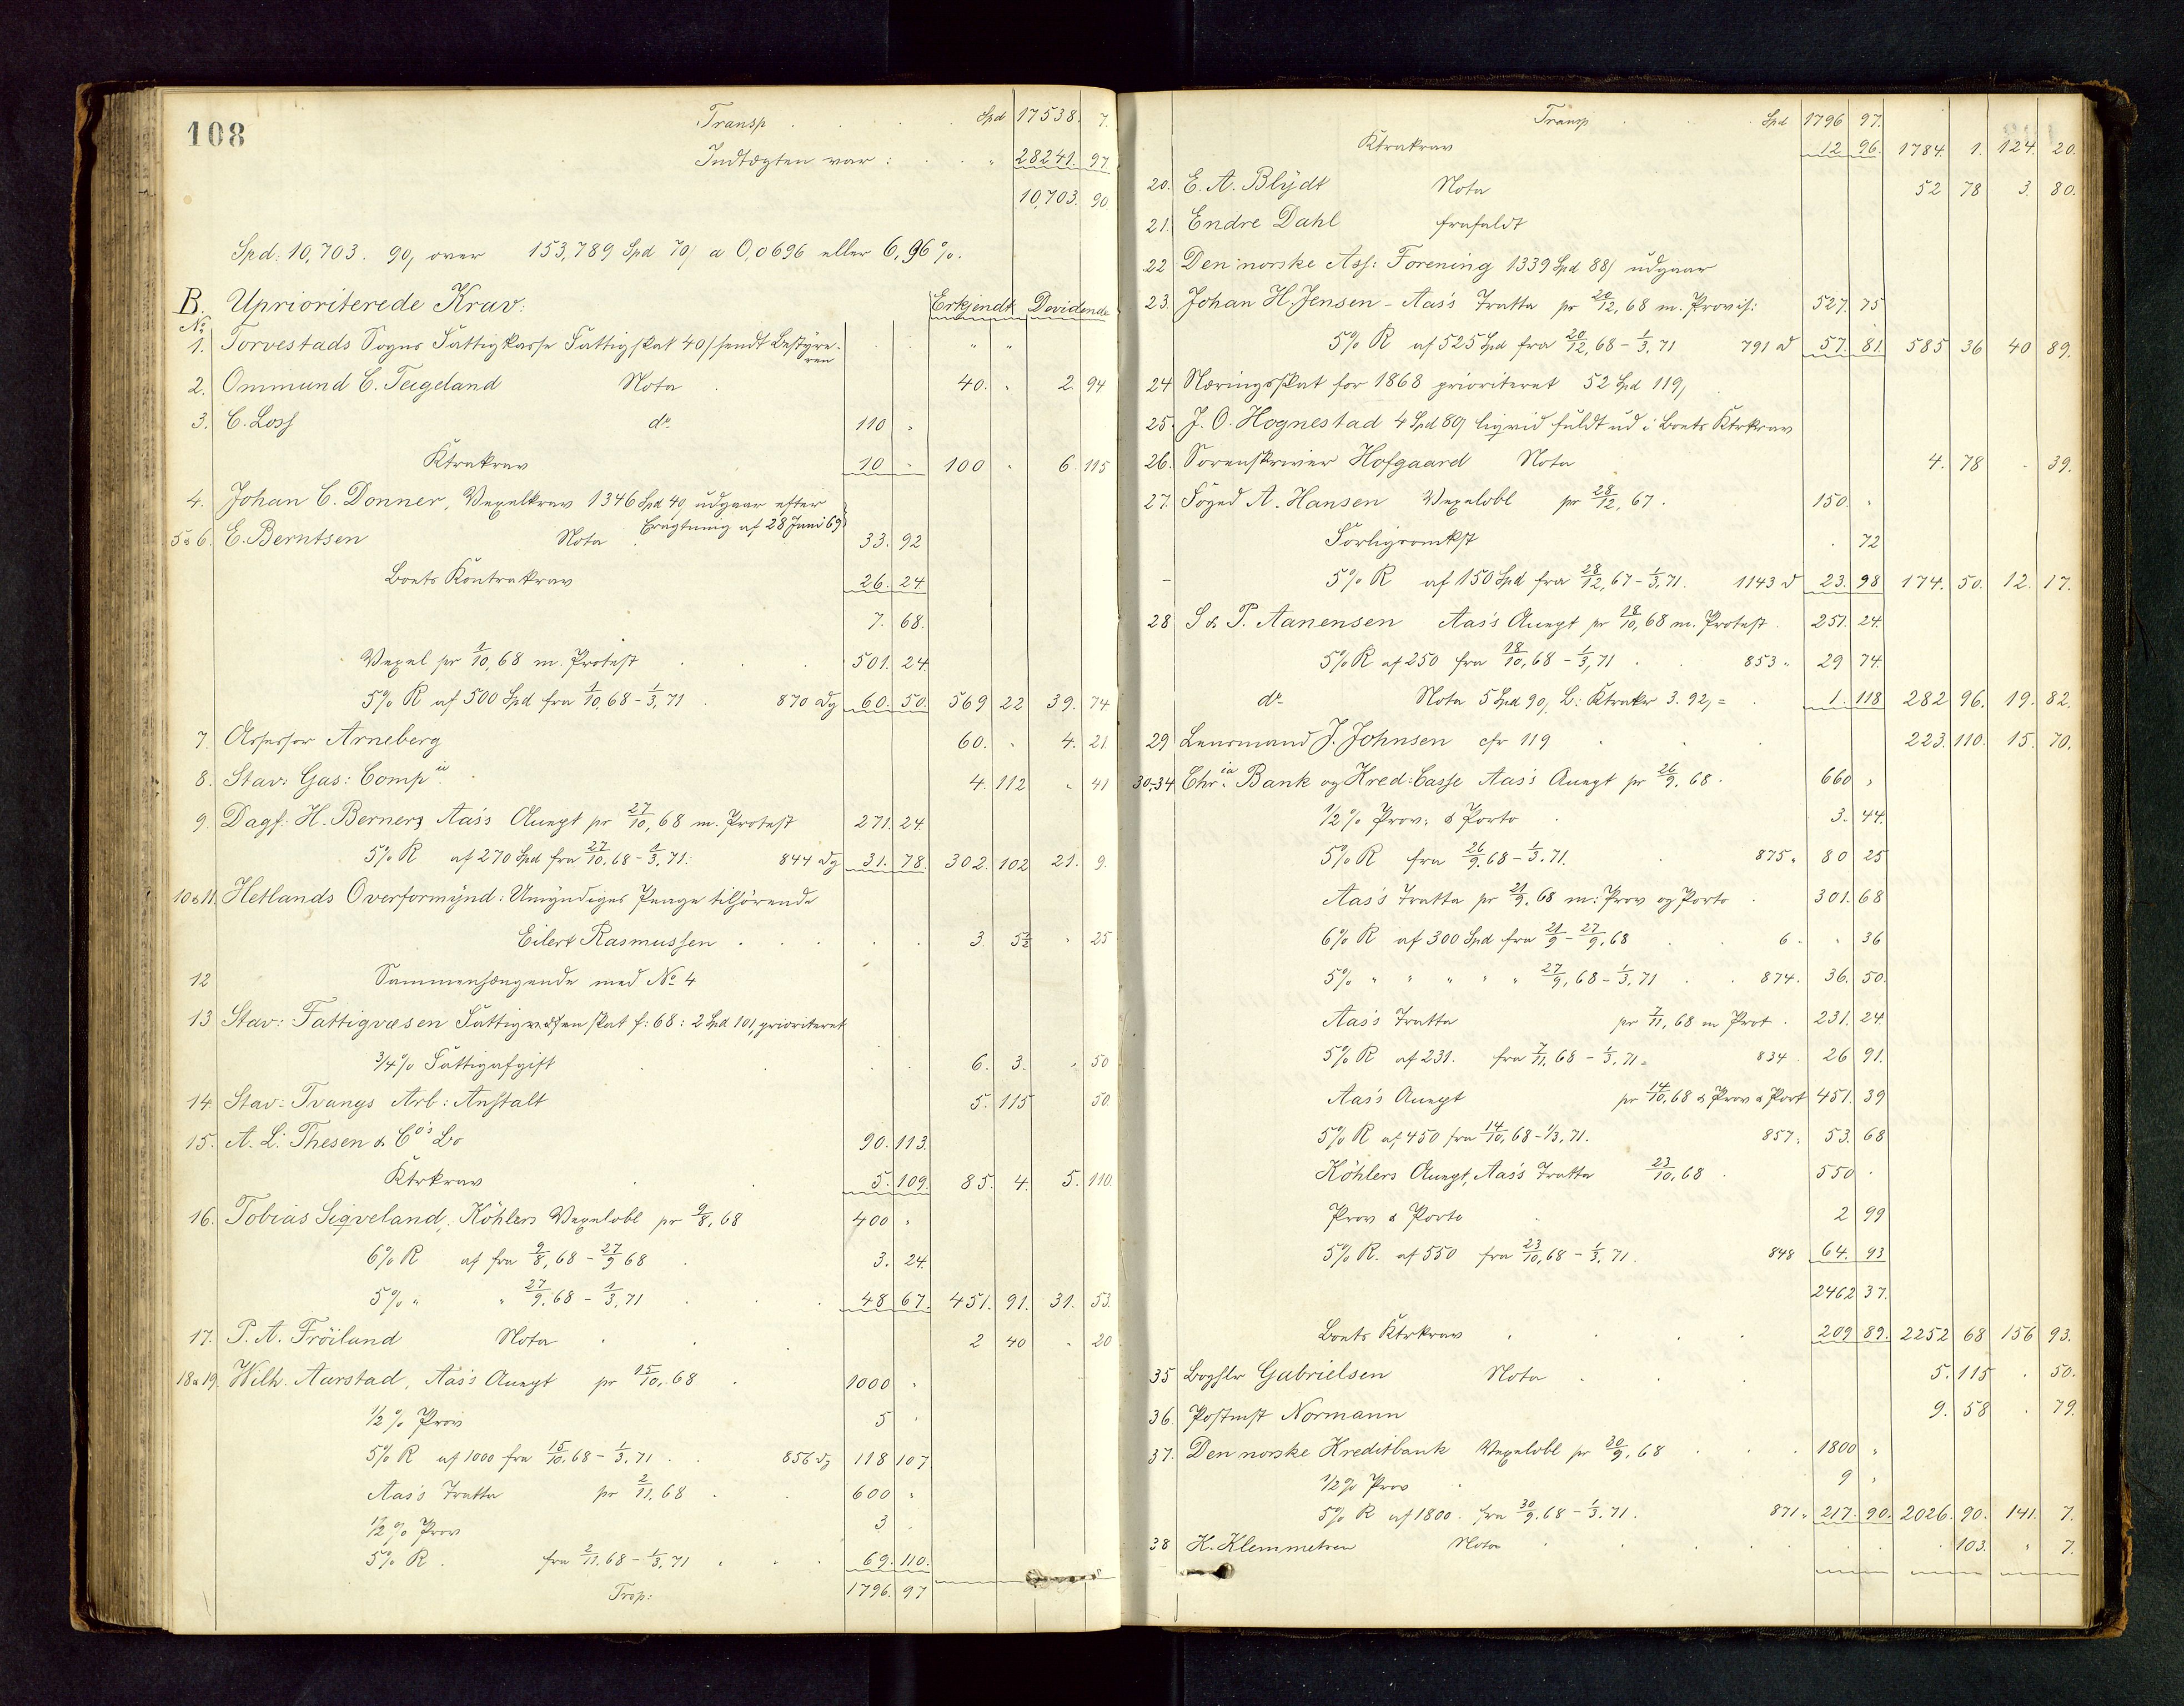 108
Transp . . . . Spd 17538. 7.
Indtægten var: . . " 28241. 97
10,703. 90.
Spd: 10,703. 90, over 153,789 Spd 70/ a 0,0696 eller 6,96%.
B. Uprioriterede Krav: Erkjendt Devidende
No
1. Torvestads Sogns Fattigkasse Fattigskat 40/ sendt Bestyre- " "
ren
2. Ommund C. Teigeland Nota . 40. " 2. 94
3. C. Loss do 110 "
Ktrakrav 10 " 100 " 6. 115
4. Johan C. Donner, Vexelkrav 1346 Spd 40, udgaar efter
Eragtning af 28 Juni 69
5 & 6. E. Berntsen Nota . 33. 92
Boets Kontrakrav 26. 24
7. 68.
Vexel pr 1/10, 68 m. Protest . . . 501. 24
5% R af 500 Spd fra 1/10, 68 - 1/3, 71 . 870 Dg 60. 50. 569 22 39. 74
7. Assessor Arneberg 60. " 4. 21
8. Stav: Gas: Compie . 4. 112 " 41
9. Dagf: H. Berners Aas's Accept pr 27/10, 68 m. Protest 271. 24.
5% R af 270 Spd fra 27/10, 68 - 1/3, 71: 844 Dg 31. 78. 302. 102 21. 9.
10 & 11. Hetlands Overformynd: Umyndiges Penge tilhörende
Eilert Rasmussen . . . . . 3. 5½ " 25
12 Sammenhængende med No 4
13 Stav: Fattigvæsen Fattigvæsenskat f: 68: 2 Spd 101, prioriteret
3/4% Fattigafgift . . . 6. 3. " 50
14. Stav: Tvangs Arb: Anstalt 5. 115 50
15. A. L. Thesen & Co's Bo 90. 113.
Ktrkrav . . 5. 109. 85. 4. 5. 110.
16. Tobias Sigveland, Köhlers Vexelobl pr 9/8, 68 400 "
6% R af fra 9/8, 68 - 27/9 68 . 3. 24.
5% " " 27/9, 68 - 1/3, 71 . . . 48 67. 451. 91. 31. 53.
17. P. A. Fröiland Nota . . 2 40 " 20
18 & 19. Wilh. Aarstad, Aas's Accept pr 15/10, 68 . 1000 "
1/2% Prov 5 "
5% R af 1000 fra 15/10, 68 - 1/3, 71 . . 856 Dg 118 107
Aas's Tratta pr 2/11, 68 . . 600 "
1/2% Prov 3 .
5% R . fra 2/11, 68 - 1/3, 71 . . . 69. 110.
Trsp: 1796. 97
Transp . . Spd 1796 97.
Ktrakrav 12 96. 1784. 1. 124. 20.
20. E. A. Blÿdt Nota 52 78 3. 80.
21. Endre Dahl frafaldt
22 Den norske Ass: Forening 1339 Spd 88/ udgaar
23. Johan H. Jensen - Aas's Tratta pr 20/12, 68 m. Provis: 527. 75
5% R af 525 Spd fra 20/12, 68 - 1/3, 71 791 d 57. 81. 585 36 40 89.
24 Næringsskat for 1868 prioriteret 52 Spd 119,
25. J. O. Hognestad 4 Spd 89/ liqvid fuldt ud i Boets Ktrkrav
26. Sorenskriver Hofgaard Nota 4. 78 " 39.
27. Foged A. Hansen Vexelobl pr 28/12, 67 . 150. "
Forligsomkst . 72
5% R af 150 Spd fra 28/12, 67 - 1/3, 71. 1143 d 23. 98 174. 50. 12. 17.
28 S & P. Aanensen Aas's Accept pr 18/10, 68 m. Protest . 251. 24.
5% R af 250 fra 18/10, 68 - 1/3, 71 . . 853 " 29 74.
do Nota 5 Spd 90, B: Ktrakr 3. 92, = . 1. 118 282 96. 19. 82.
29 Lensmand J. Johnsen cfr 119 . . . 223. 110. 15. 70.
30-34 Chr:ia Bank og Kred: Casse Aas's Accept pr 26/9, 68 . 660 "
1/2% Prov: & Porto . 3. 44.
5% R fra 26/9, 68 - 1/3, 71. . 875 " 80 25
Aas's Tratta pr 21/9, 68 m: Prov og Porto . 301. 68
6% R af 300 Spd fra 21/9 - 27/9, 68 . . 6 - " 36
5% " " " " " 27/9, 68 - 1/3, 71 . . 874. 36. 50.
Aas's Tratta pr 7/11, 68 m Prot . 231. 24.
5% R af 231. fra 7/11, 68 - 1/3, 71 = 834 . 26 91.
Aas's Accept pr 14/10, 68 & Prov & Port 451. 39
5% R af 450 fra 14/10, 68 - 1/3, 71. 857. 53. 68
Köhlers Accept, Aas's Tratta 23/10, 68 . 550 .
Prov & Porto . 2 99
5% R. af 550 fra 23/10, 68 - 1/3, 71. 848 64. 93
2462 37.
Boets Ktrkrav . . . . 209 89. 2252 68 156 93.
35 Boghlr Gabrielsen Nota . . . 5. 115 . 50.
36. Postmst Normann 9. 58 . 79.
37. Den norske Kreditbank Vexelobl pr 30/9, 68 . . . 1800 "
1/2% Prov . 9 "
5% R af 1800 . fra 30/9, 68 - 1/3, 71. 871 " 217. 90. 2026. 90. 141. 7.
38 K. Klemmetsen Nota . . . . . . 103. " 7.